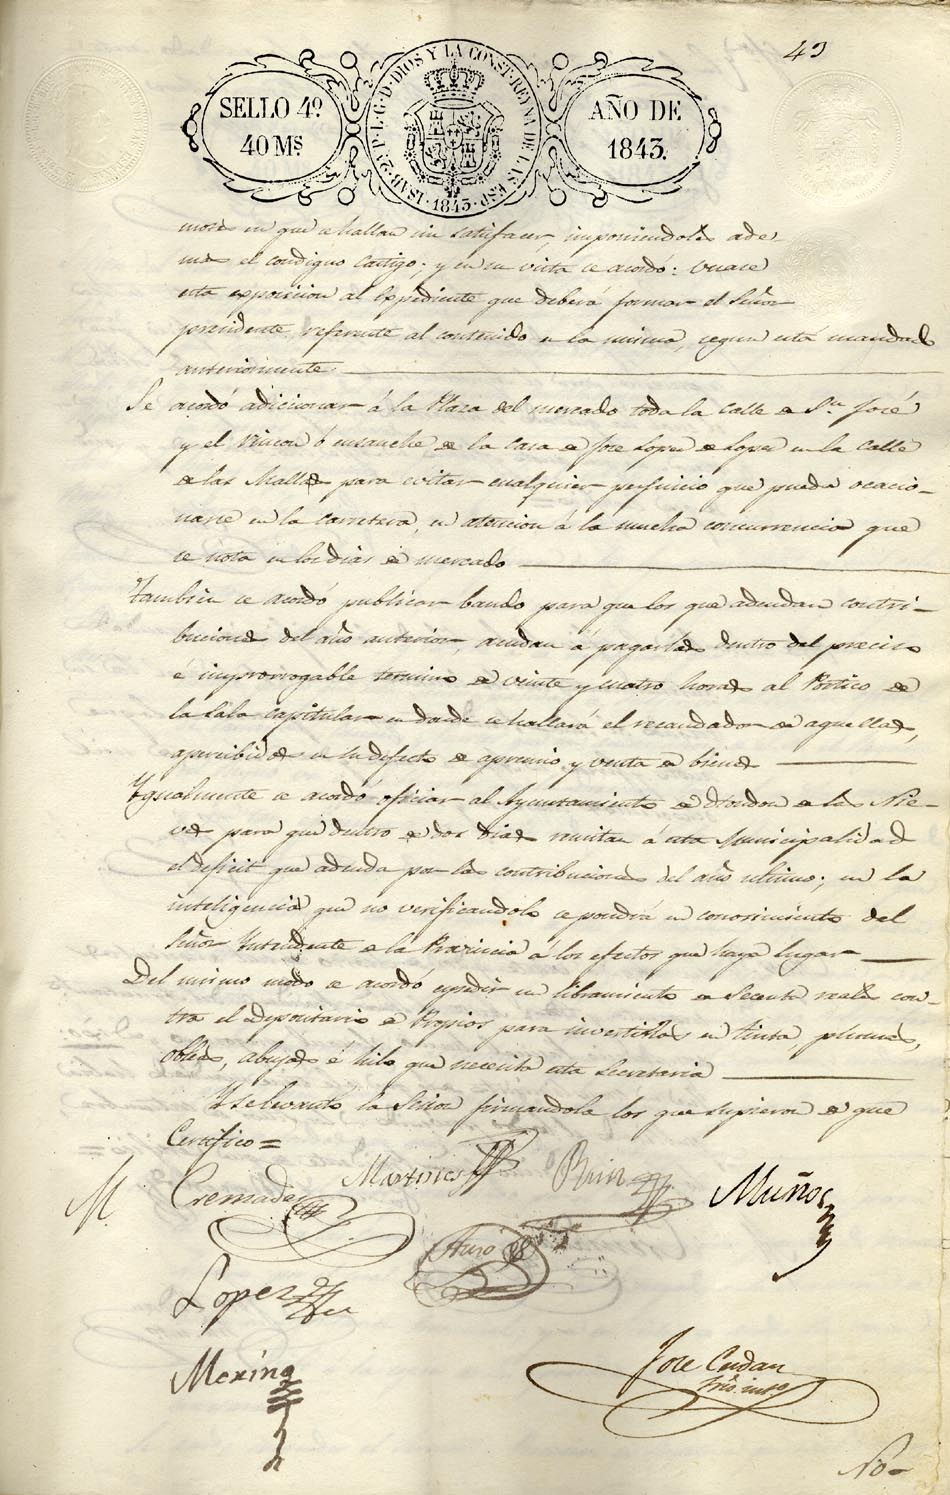 43
SELLO 4º.
40 Mˢ.
ISAB. 2ª. P. L. G. D. DIOS Y LA CONST. REYNA DE LAS ESP.
1843
AÑO DE
1843.
en que se hallan sin satisfacer, imponiendoles ade
mas el condigno castigo; y en su vista se acordó: Unase
esta exposicion al Expediente que deberá formar el Señor
presidente, referente al contenido de la misma, segun está mandado
anteriormente
Se acordó adicionar á la Plaza del mercado toda la calle de Sⁿ José
y el rincon ó ensanche de la casa de José Lopez de Lopez en la calle
de las para evitar cualquier perjuicio que pueda ocacio-
narse en la carretera, en atencion á la mucha concurrencia que
se nota en los dias de mercado
Tambien se acordó publicar bando para que los que adeudan contri-
buciones del año anterior, acudan á pagarlas dentro del preciso
é improrrogable termino de veinte y cuatro horas al Pórtico de
la Sala capitular en donde se hallará el recaudador de aquellas,
apercibidos en su defecto de apremio y venta de bienes
Ygualmente se acordó oficiar al Ayuntamiento de Hondon de las Nie-
ves para que dentro de dos dias remitan á esta Municipalidad
el deficit que adeuda por las contribuciones del año ultimo; en la
inteligencia que no verificandolo se pondrá en conocimiento del
Señor Yntendente de la Provincia á los efectos que haya lugar
Del mismo modo se acordó expedir un libramiento de Secenta reales con-
tra el depositario de Propios para invertirlos en tinta plumas,
obleas, abujas é hilo que necesita esta Secretaria
Y se levantó la Sesion firmandola los que supieron de que
Certifico =
M. Cremades Martinez Muños
Lopez
José Cerdan
Srio. intº.
No-